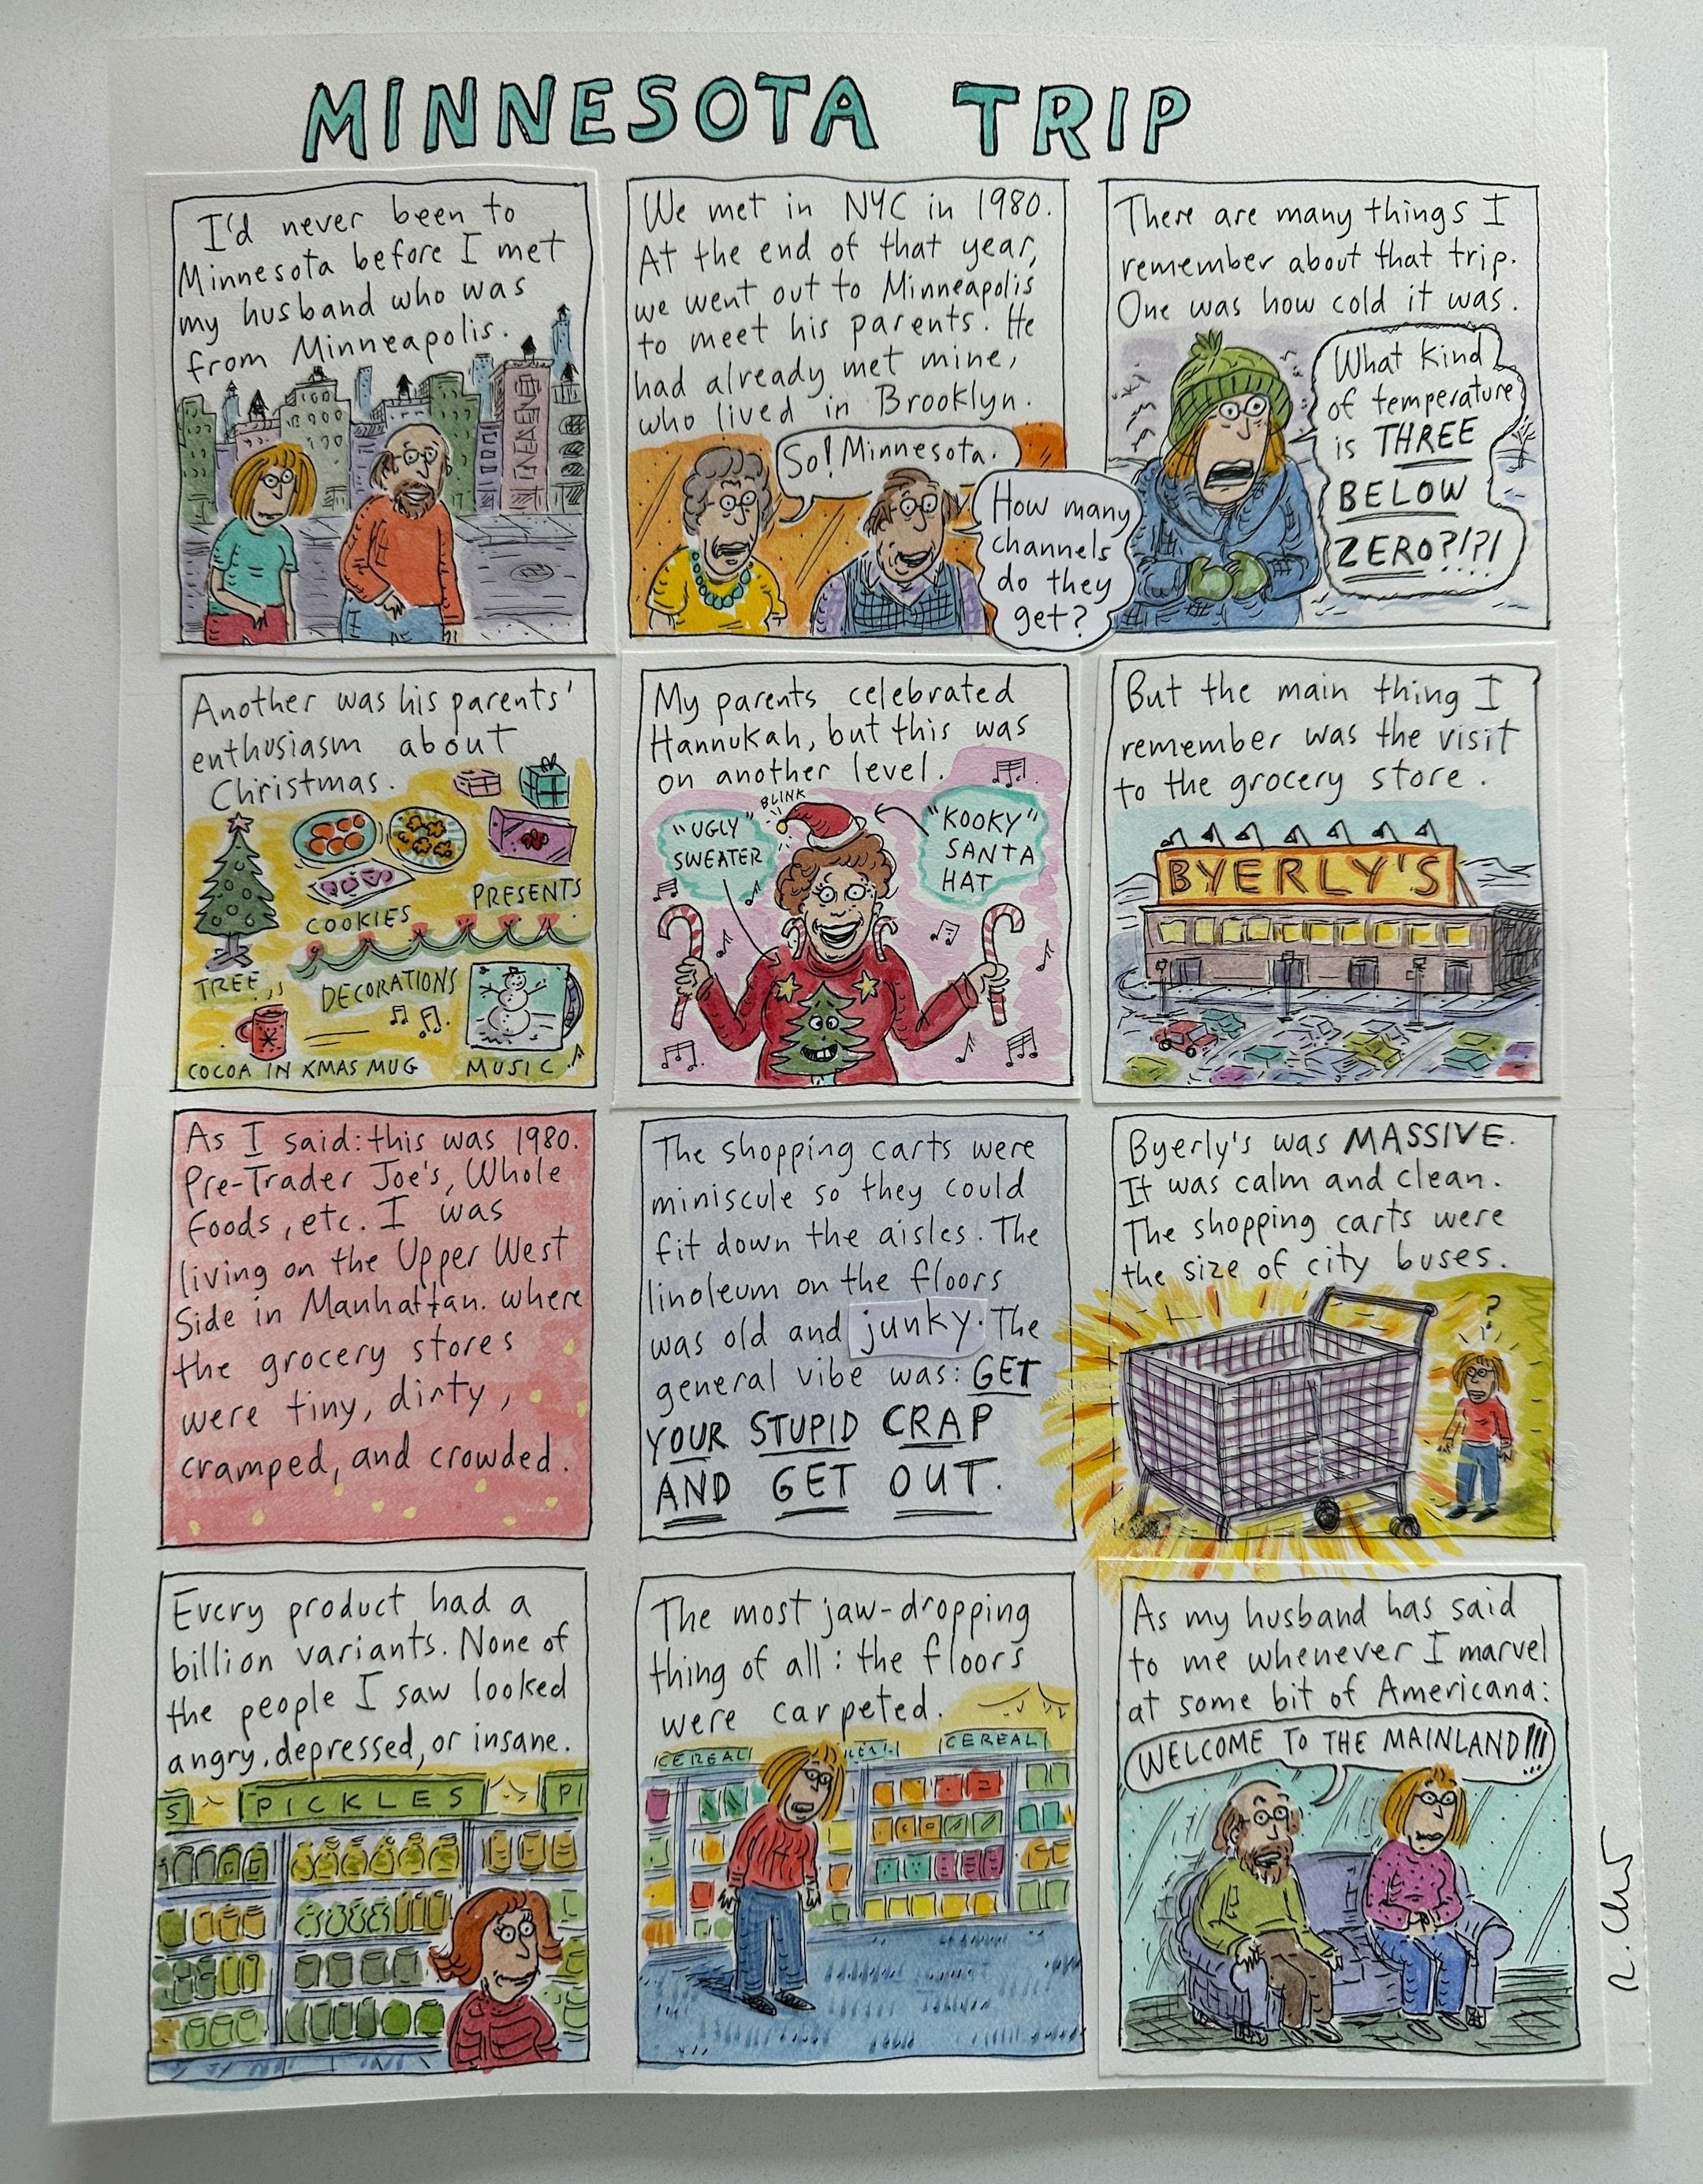 MINNESOTA TRIP
I'd never been to
Minnesota before I met
my husband who was
from Minneapolis.
We met in NYC in 1980.
At the end of that year,
we went out to Minneapolis
to meet his parents. He
had already met mine,
who lived in Brooklyn.
So! Minnesota.
How many
channels
do they
get?
There are many things I
remember about that trip.
One was how cold it was.
What kind
of temperature
is THREE
BELOW
ZERO?!?!
Another was his parents'
enthusiasm about
Christmas.
PRESENTS
COOKIES
TREE
DECORATIONS
COCOA IN XMAS MUG
MUSIC
My parents celebrated
Hannukah, but this was
on another level.
BLINK
"UGLY"
SWEATER
"KOOKY"
SANTA
HAT
But the main thing I
remember was the visit
to the grocery store.
BYERLY'S
As I said: this was 1980.
Pre-Trader Joe's, Whole
Foods, etc. I was
living on the Upper West
Side in Manhattan. where
the grocery stores
were tiny, dirty,
cramped, and crowded.
The shopping carts were
miniscule so they could
fit down the aisles. The
linoleum on the floors
was old and junky. The
general vibe was: GET
YOUR STUPID CRAP
AND GET OUT.
Byerly's was MASSIVE.
It was calm and clean.
The shopping carts were
the size of city buses.
?
Every product had a
billion variants. None of
the people I saw looked
angry, depressed, or insane.
S
PICKLES
PI
The most jaw-dropping
thing of all: the floors
were carpeted.
CEREAL
CEREAL
As my husband has said
to me whenever I marvel
at some bit of Americana:
WELCOME TO THE MAINLAND!!!